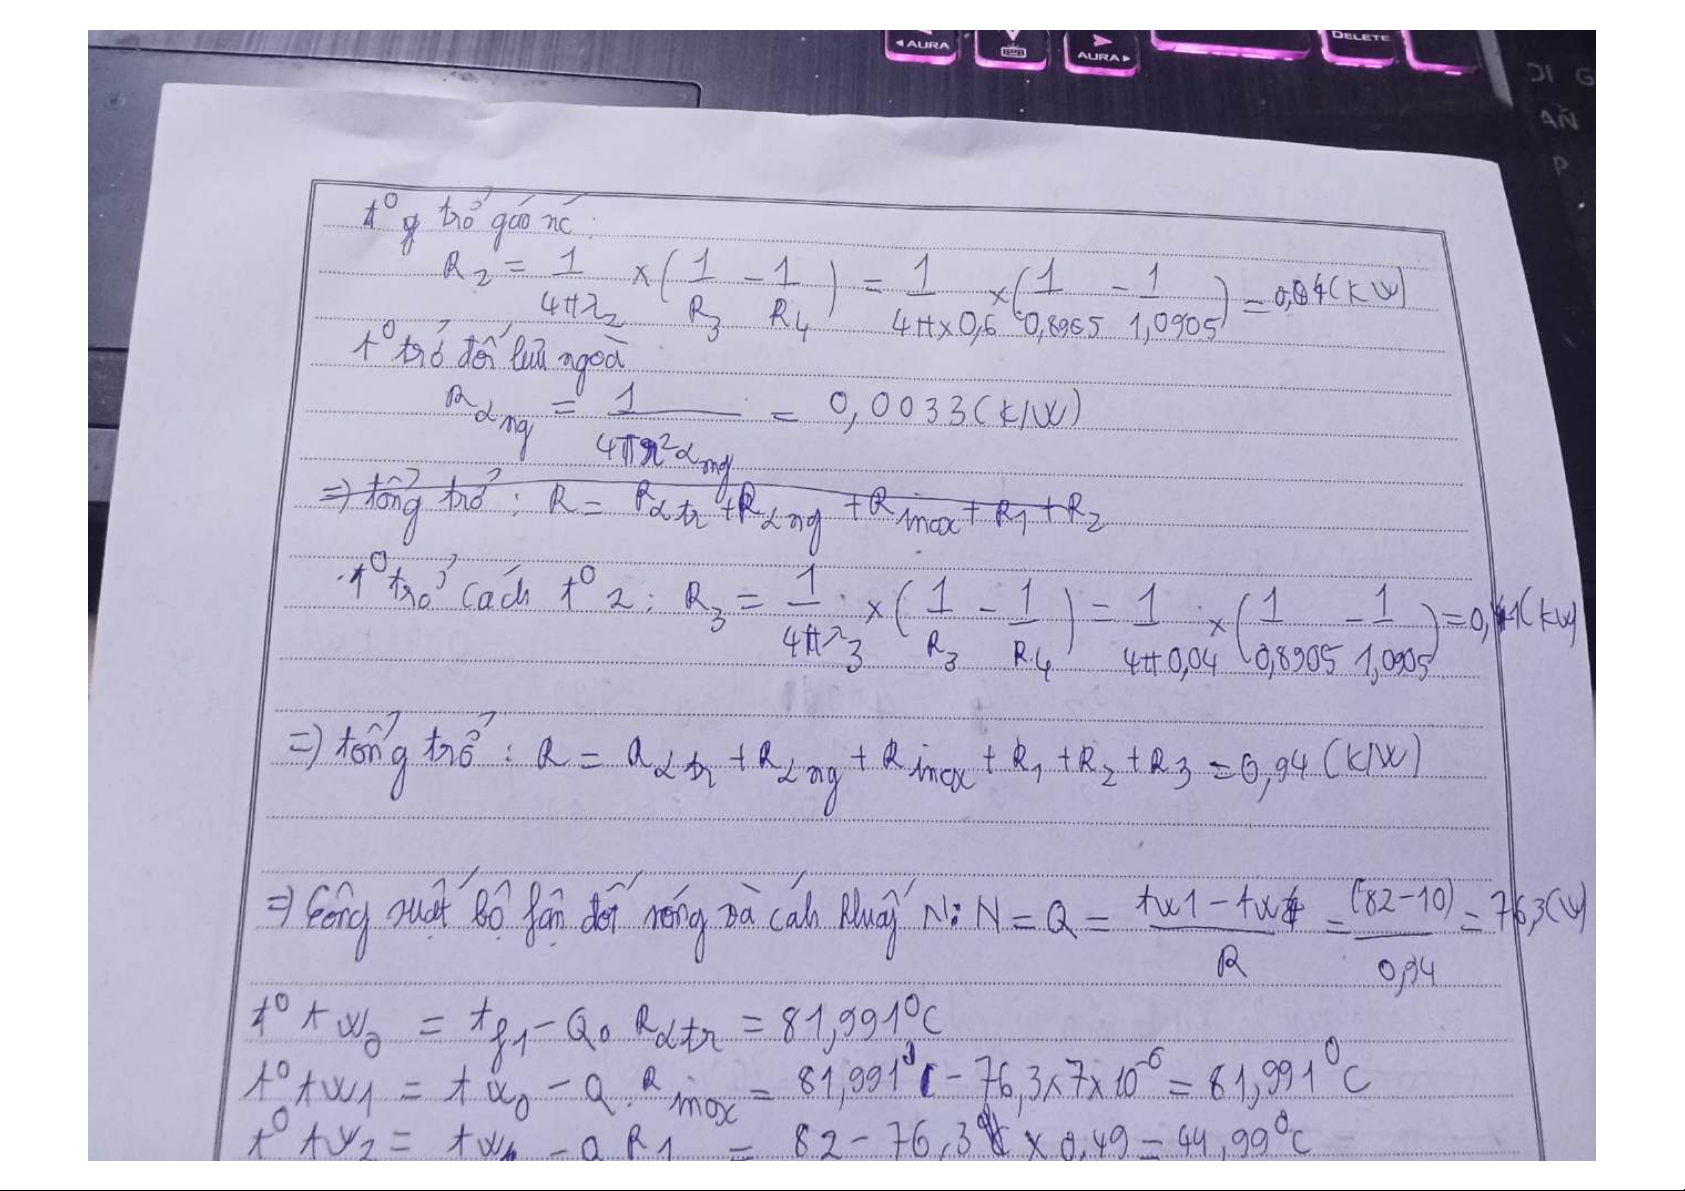 ◄ AURA
AURA ►
DELETE
t⁰ trở gáo nc:
R₂ = 1/(4πλ₂) × (1/R₃ - 1/R₄) = 1/(4π×0,6) × (1/0,8965 - 1/1,0905) = 0,04 (KW)
t⁰ trở đối lưu ngoà
Rαng = 1/(4πr²αng) = 0,0033 (K/W)
=) tổng trở : R = Rαtr + Rαng + Rinox + R1 + R2
t⁰ trở cách t⁰ 2 : R₃ = 1/(4πλ₃) × (1/R₃ - 1/R₄) = 1/(4π0,04) × (1/0,8905 - 1/1,0905) = 0,41 (KW)
=) tổng trở : R = Rαtr + Rαng + Rinox + R1 + R2 + R3 = 0,94 (K/W)
=) Công suất bộ fận đốt nóng và cánh khuấy N: N = Q = (tw1 - tw4)/R = (82-10)/0,94 = 76,3 (W)
t⁰ tw₀ = tf1 - Q. Rαtr = 81,991⁰C
t⁰ tw1 = tw₀ - Q. Rinox = 81,991⁰C - 76,3×7×10⁻⁶ = 81,991⁰C
t⁰ tw2 = tw1 - Q R1 = 82 - 76,3 × 0,49 = 44,99⁰C